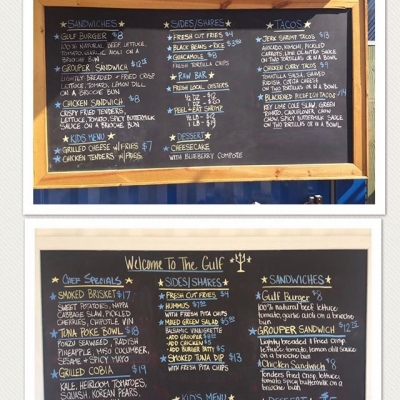 SANDWICHES
GULF BURGER $8
100% NATURAL BEEF, LETTUCE,
TOMATO, GARLIC AIOLI ON A
BRIOCHE BUN
GROUPER SANDWICH
LIGHTLY BREADED + FRIED CRISP
LETTUCE, TOMATO, LEMON DILL
ON A BRIOCHE BUN
CHICKEN SANDWICH $8
CRISPY FRIED TENDERS,
LETTUCE, TOMATO, SPICY BUTTERMILK
SAUCE ON A BRIOCHE BUN
KIDS MENU
GRILLED CHEESE W/FRIES $7
CHICKEN TENDERS W/FRIES
SIDES/SHARES
FRESH CUT FRIES $4
BLACK BEANS + RICE
GUACAMOLE $8
FRESH TORTILLA CHIPS
RAW BAR
FRESH LOCAL OYSTERS
PEEL + EAT SHRIMP
1/2 LB -
1 LB -
DESSERT
CHEESECAKE
WITH BLUEBERRY COMPOTE
TACOS
JERK SHRIMP TACOS $13
AVOCADO, KIMCHI, PICKLED
CARROTS, LIME CILANTRO SAUCE
ON TWO TORTILLAS OR IN A BOWL.
CHICKEN CURRY TACOS
TOMATILLO SALSA, SHAVED
RADISH, COTIJA CHEESE
ON TWO TORTILLAS OR IN A BOWL.
BLACKENED REDFISH TACOS
KEY LIME COLE SLAW, GREEN
TOMATO, CAULIFLOWER, CHOW
CHOW, SPICY BUTTERMILK SAUCE
ON TWO TORTILLAS OR IN A BOWL.
Welcome To The Gulf
CHEF SPECIALS
SMOKED BRISKET $17
SWEET POTATOES, NAPPA
CABBAGE SLAW, PICKLED
CHERRIES, CHIPOTLE VIN
TUNA POKE BOWL $18
PONZU SEAWEED, RADISH
PINEAPPLE, MISO CUCUMBER,
SESAME + SPICY MAYO
GRILLED COBIA $19
KALE, HEIRLOOM TOMATOES,
SQUASH, KOREAN PEARS,
SIDES/SHARES
FRESH CUT FRIES $4
HUMMUS
WITH FRESH PITA CHIPS
MIXED GREEN SALAD
BALSAMIC VINAIGRETTE
ADD GROUPER
ADD CHICKEN
ADD BURGER PATTY
SMOKED TUNA DIP $13
WITH FRESH PITA CHIPS
KIDS MENU
SANDWICHES
Gulf Burger $8
100% natural beef lettuce
tomato, garlic aioli on a brioche
bun
GROUPER SANDWICH
Lightly breaded & fried crisp
lettuce, tomato, lemon dill sauce
on a brioche bun
Chicken Sandwich $8
Tenders fried crisp, lettuce
tomato, spicy buttermilk on a
brioche bun